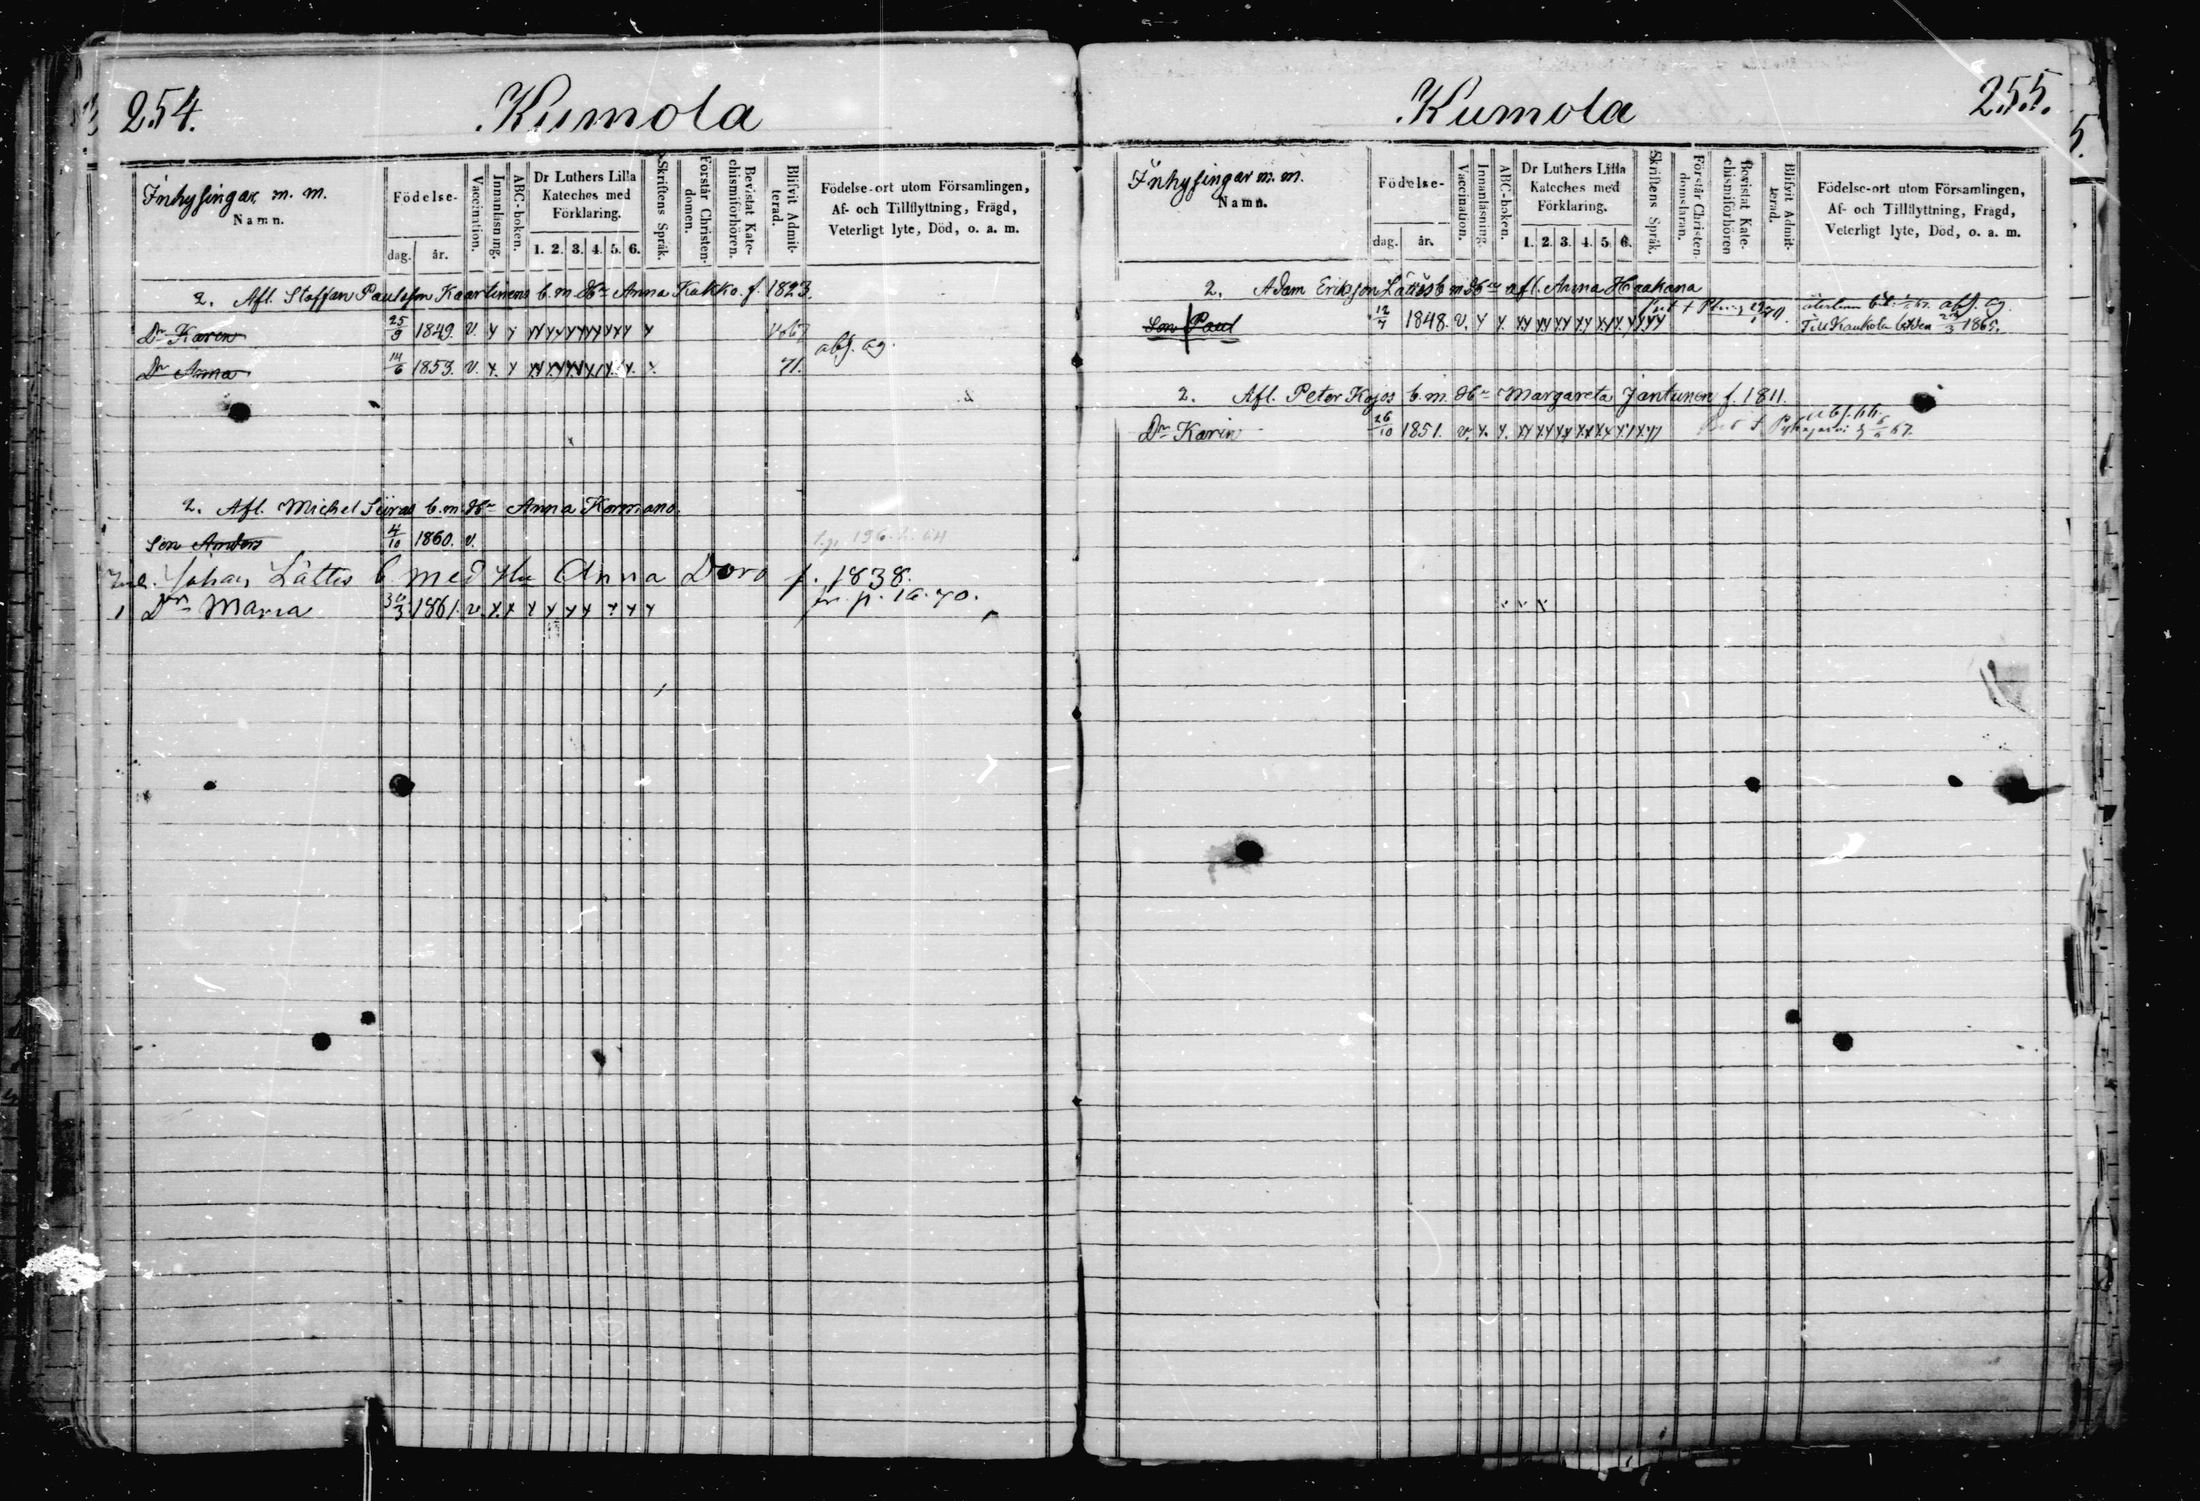 254. Kumola
Inhysingar m. m.
Namn.
Födelse-
dag. år.
Vaccination.
Innanläsning.
ABC-boken.
Dr Luthers Lilla Kateches med Förklaring.
1. 2. 3. 4. 5. 6.
Skriftens Språk.
Förstår Christendomen.
Bevistat Katechismiförhören.
Blifvit Admitterad.
Födelse-ort utom Församlingen,
Af- och Tillflyttning, Frägd,
Veterligt lyte, Död, o. a. m.
2. Afl. Staffan Paulsson Kaartinens b. m. Hu Anna Kakko. f. 1823.
Dr Karin 25/9 1849. v. x x xx xx xx xx xx x x
abs. ag.
Dr Anna 14/6 1853. v. x. x xx xx xx x x x. x. 71.
2. Afl. Michel Siiras b. m. Hu Anna Kormano.
Son Anders 4/10 1860. v.
Johan Lättis b med Hu Anna Doro f. 1838.
1 Dr Maria 30/3 1861. v. x. x x x x x x x x fr. p. 16. 70.
Kumola 255.
Inhysingar m. m.
Namn.
Födelse-
dag. år.
Vaccination.
Innanläsning.
ABC-boken.
Dr Luthers Lilla Kateches med Förklaring.
1. 2. 3. 4. 5. 6.
Skriftens Språk.
Förstår Christendomsläran.
Bevistat Katechismiförhören
Blifvit Admitterad.
Födelse-ort utom Församlingen,
Af- och Tillflyttning, Fragd,
Veterligt lyte, Död, o. a. m.
2. Adam Eriksson Lättis b m Hu afl. Anna Haakana
abs. ag.
Son Paul 12/7 1848. v. x x. xx xx xx xx xx xx xx Till Kaukola 1865.
2. Afl. Peter Kojos b. m. Hu Margareta Jantunen f. 1811.
Dr Karin 26/10 1851. v. x. x. xx xx xx xx xx x x x Pyhäjärvi 67.